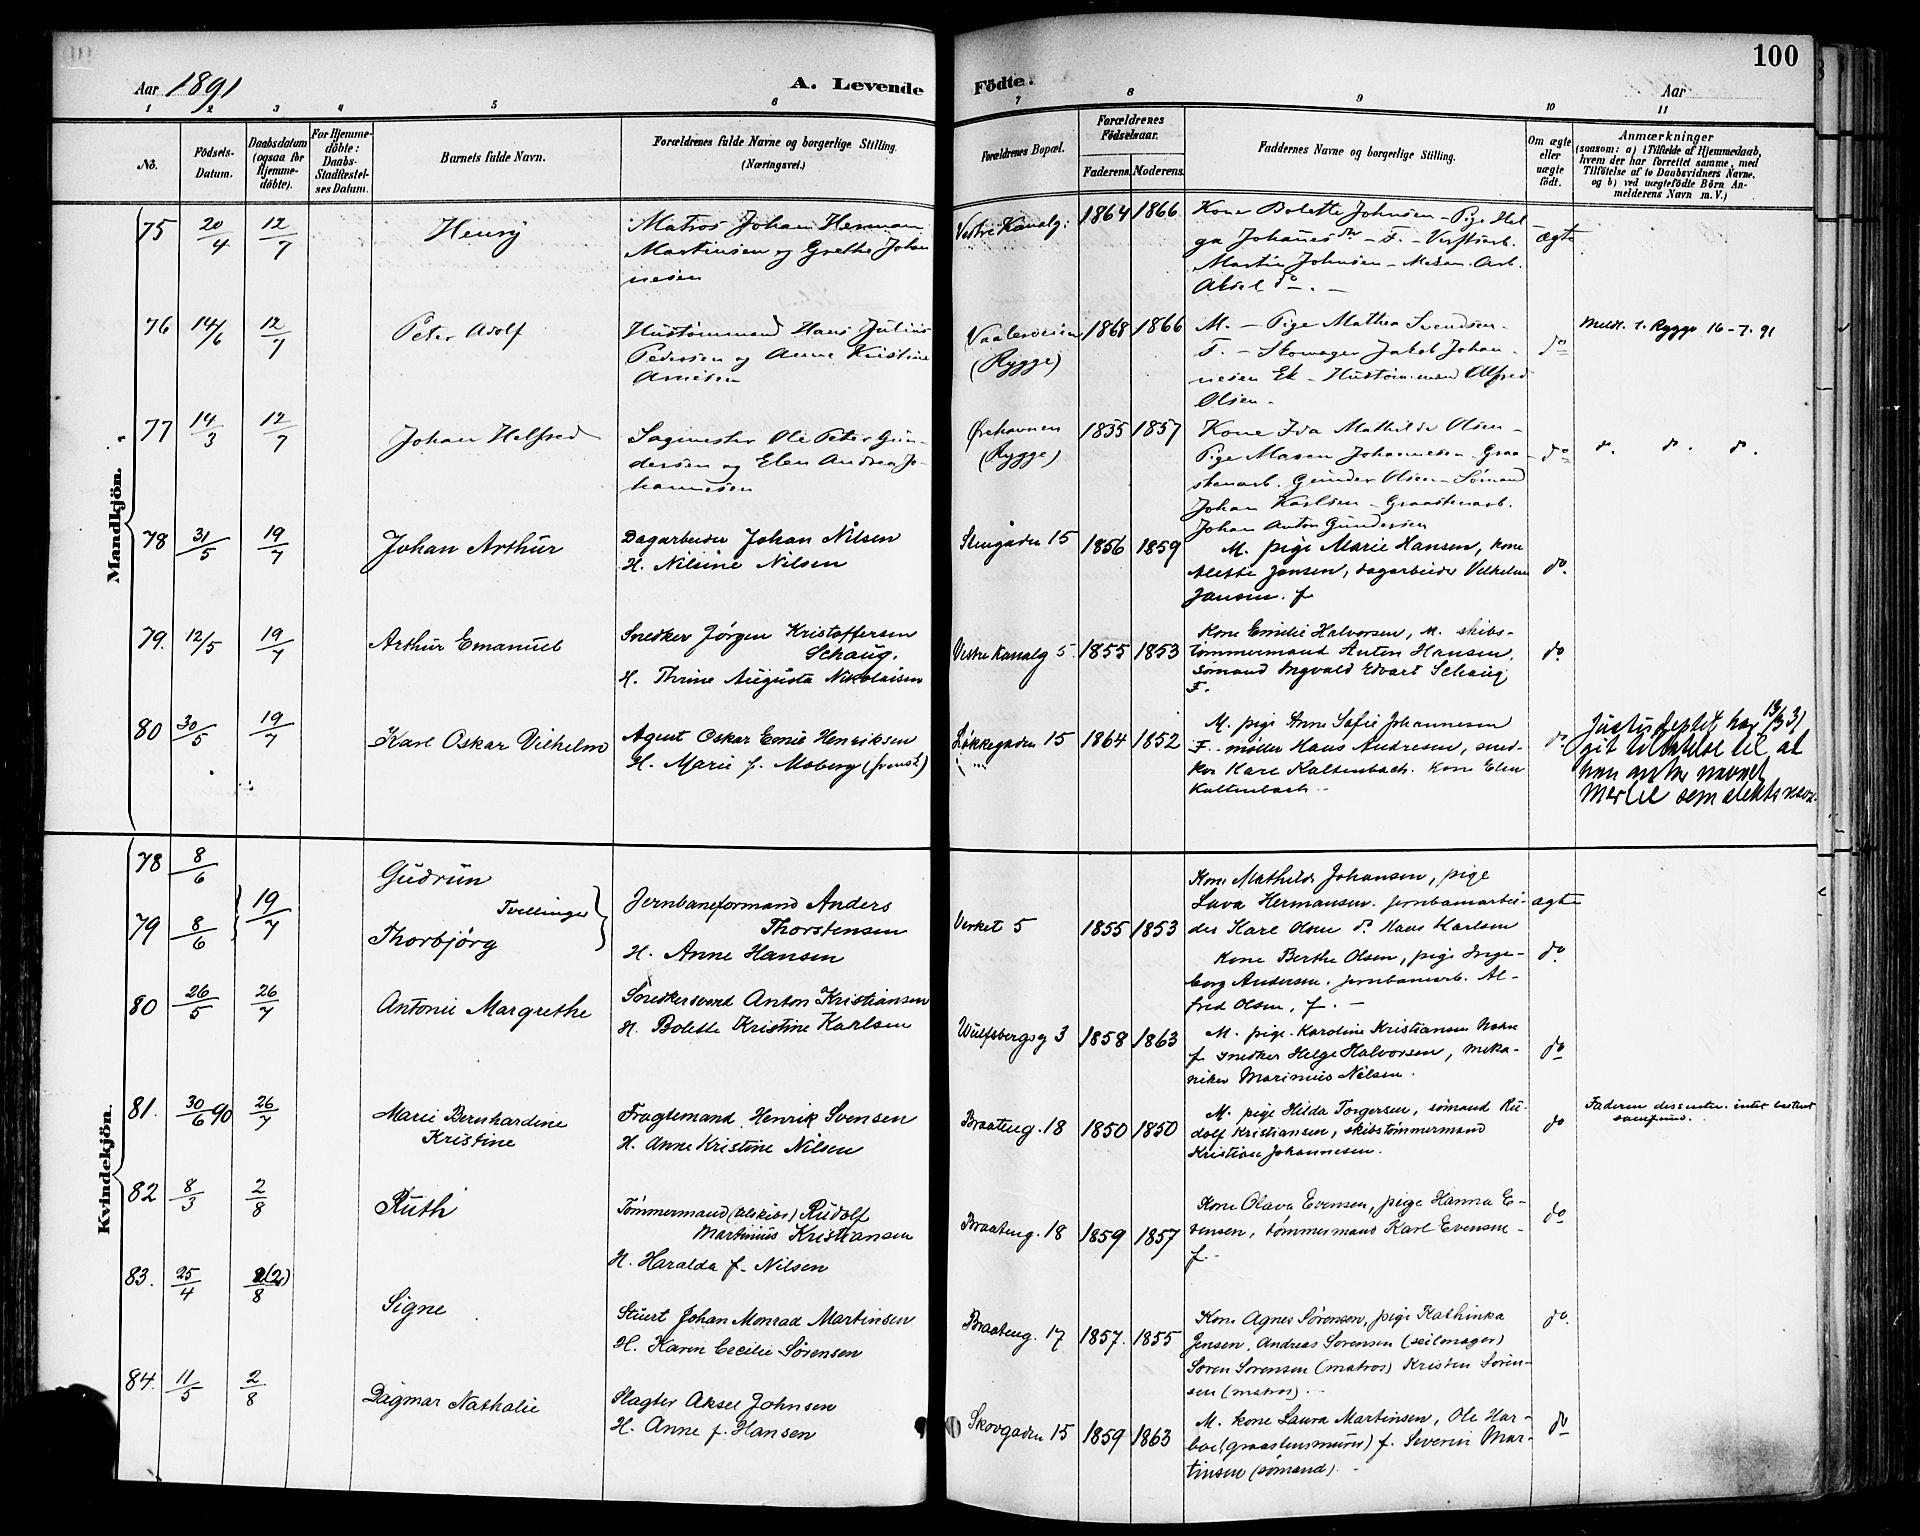 Aar 1891
A. Levende
1 2 3 4 5 6
No.
Födsels-Datum.
Daabsdatum (ogsaa for Hjemme-döbte).
For Hjemme-döbte: Daabs-Stadfæstel-ses Datum.
Barnets fulde Navn.
Forældrenes fulde Navne og borgerlige Stilling. (Næringsvei.)
Mandkjön.
75 20/4 12/7 Henry
Matros Johan Herman
Martinsen og Grethe Johan
nesen
76 14/6 12/7 Peter Adolf
Hustømmermand Hans Julius
Pedersen og Anne Kristine
Arnesen
77 14/3 12/7 Johan Helfred
Sagmester Ole Peter Gun-
dersen og Elen Andrea Jo-
hannesen
78 31/5 19/7 Johan Arthur
Dagarbeider Johan Nilsen
H. Nilsine Nilsen
79. 12/5 19/7 Arthur Emanuel
Snedker Jørgen Kristoffersen
Schaug.
H. Thrine Augusta Nikolaisen
80 30/5 19/7 Karl Oskar Vilhelm
Agent Oskar Emil Henriksen
H. Marie f. Moberg (svensk)
Kvindekjön.
78 8/6 Gudrun
79 8/6 19/7 Tvillinger
Thorbjörg
Jernbaneformand Anders
Thorstensen
H. Anne Hansen
80 26/5 26/7 Antonie Margrethe
Snedkersvend Anton Kristiansen
H. Bolette Kristine Karlsen
81. 30/6 90 26/7 Marie Bernhardine
Kristine
Fragtemand Henrik Svensen
H. Anne Kristine Nilsen
82 8/3 2/8 Ruth
Tømmermand (tilskibs) Rudolf
Martinius Kristiansen
H. Haralda f. Nilsen
83. 25/4 2(2)/8 Signe
Stuert Johan Monrad Martinsen
H. Karen Cecilie Sørensen
84. 11/5 2/8 Dagmar Nathalie
Slagter Aksel Johnsen
H. Anne f. Hansen
100
Födte.
Aar
7 8 9 10 11
Forældrenes Bopæl.
Forældrenes Födselsaar.
Faderens. Moderens.
Faddernes Navne og borgerlige Stilling.
Om ægte eller uægte födt.
Anmærkninger
(saasom: a) i Tilfælde af Hjemmedaab,
hvem der har forrettet samme, med
Tilföielse af to Daabsvidners Navne,
og b) ved uægtefödte Börn An-
melderens Navn m. V.)
Vestre Kanalg: 1864 1866
Kone Bolette Johnsen - Pige Hel
ga Johannesdtr - F. - Verftsarb.
Martin Johnsen - Mekan. Arb.
Aksel do. -
ægte
(Rygge) 1868 1866
M. - Pige Mathea Svendsen -
F. - Skomager Jakob Johan-
nesen Ek - Hustømmermand Alfred
Olsen -
do
Meldt t. Rygge 16-7-91
Ørehavnen
(Rygge) 1835 1857
Kone Ida Mathilde Olsen -
Pige Maren Johannesen - Graa-
stenarb. Gunder Olsen - Sømand
Johan Karlsen - Graastenarb.
Johan Anton Gundersen
do
do. do. do.
Stengaden 15 1856 1859
M. pige Marie Hansen, kone
Alette Jansen, dagarbeider Vilhelm
Jansen. f
do.
Vestre Kanalg 5. 1855 1853
Kone Emilie Halvorsen, M. skibs-
tømmermand Anton Hansen,
sømand Ingvald Edvart Schaug
F.
do.
Løkkegaden 15 1864 1852
M. pige Anne Sofie Johannesen
F. møller Hans Andresen, sned-
ker Karl Kaltenbach. kone Elen
Kaltenbach.
do
Justisdeptet har 13/3 31
git tillatelse til at
han antar navnet
som slektsnavn.
Verket 5 1855 1853
Kone Mathilde Johansen, pige
Lava Hermansen. jernbanearbei-
der Karl Olsen do. Hans Karlsen
Kone Berthe Olsen, pige Inge-
borg Andersen. jernbanearb. Al-
fred Olsen, f. -
ægte
do
Wulfsbergsg 3 1858 1863
M. pige Karoline Kristiansen
f snedker Helge Halvorsen, meka-
niker Marinius Nilsen.
do
Braateng. 18 1850 1850
M. pige Hilda Torgersen, sømand Ru-
dolf Kristiansen, skibstømmermand
Kristian Johannesen.
do
Faderen dissenter. intet bestemt
samfund.
Braateng. 18 1859 1857
Kone Olava Evensen, pige Hanna E-
vensen, tømmermand Karl Evensen
f. -
do
Braateng. 17 1857. 1855
Kone Agnes Sørensen, pige Kathinka
Jensen, Andreas Sørensen (seilmager)
Søren Sørensen (matros) Kristen Søren-
sen (matros). -
do.
Skovgaden 15 1859 1863
M. kone Laura Martinsen, Ole Har-
boe (graastensmurer) f. Severin Mar-
tinsen (sømand). -
do